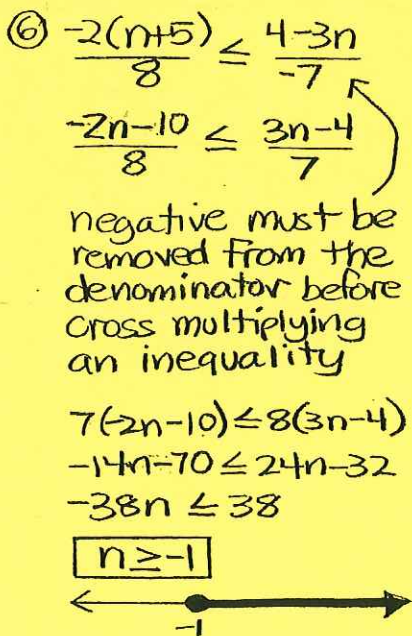 ⑥ -2(n+5)/8 ≤ 4-3n/-7
-2n-10/8 ≤ 3n-4/7
negative must be
removed from the
denominator before
cross multiplying
an inequality
7(-2n-10) ≤ 8(3n-4)
-14n-70 ≤ 24n-32
-38n ≤ 38
n ≥ -1
-1